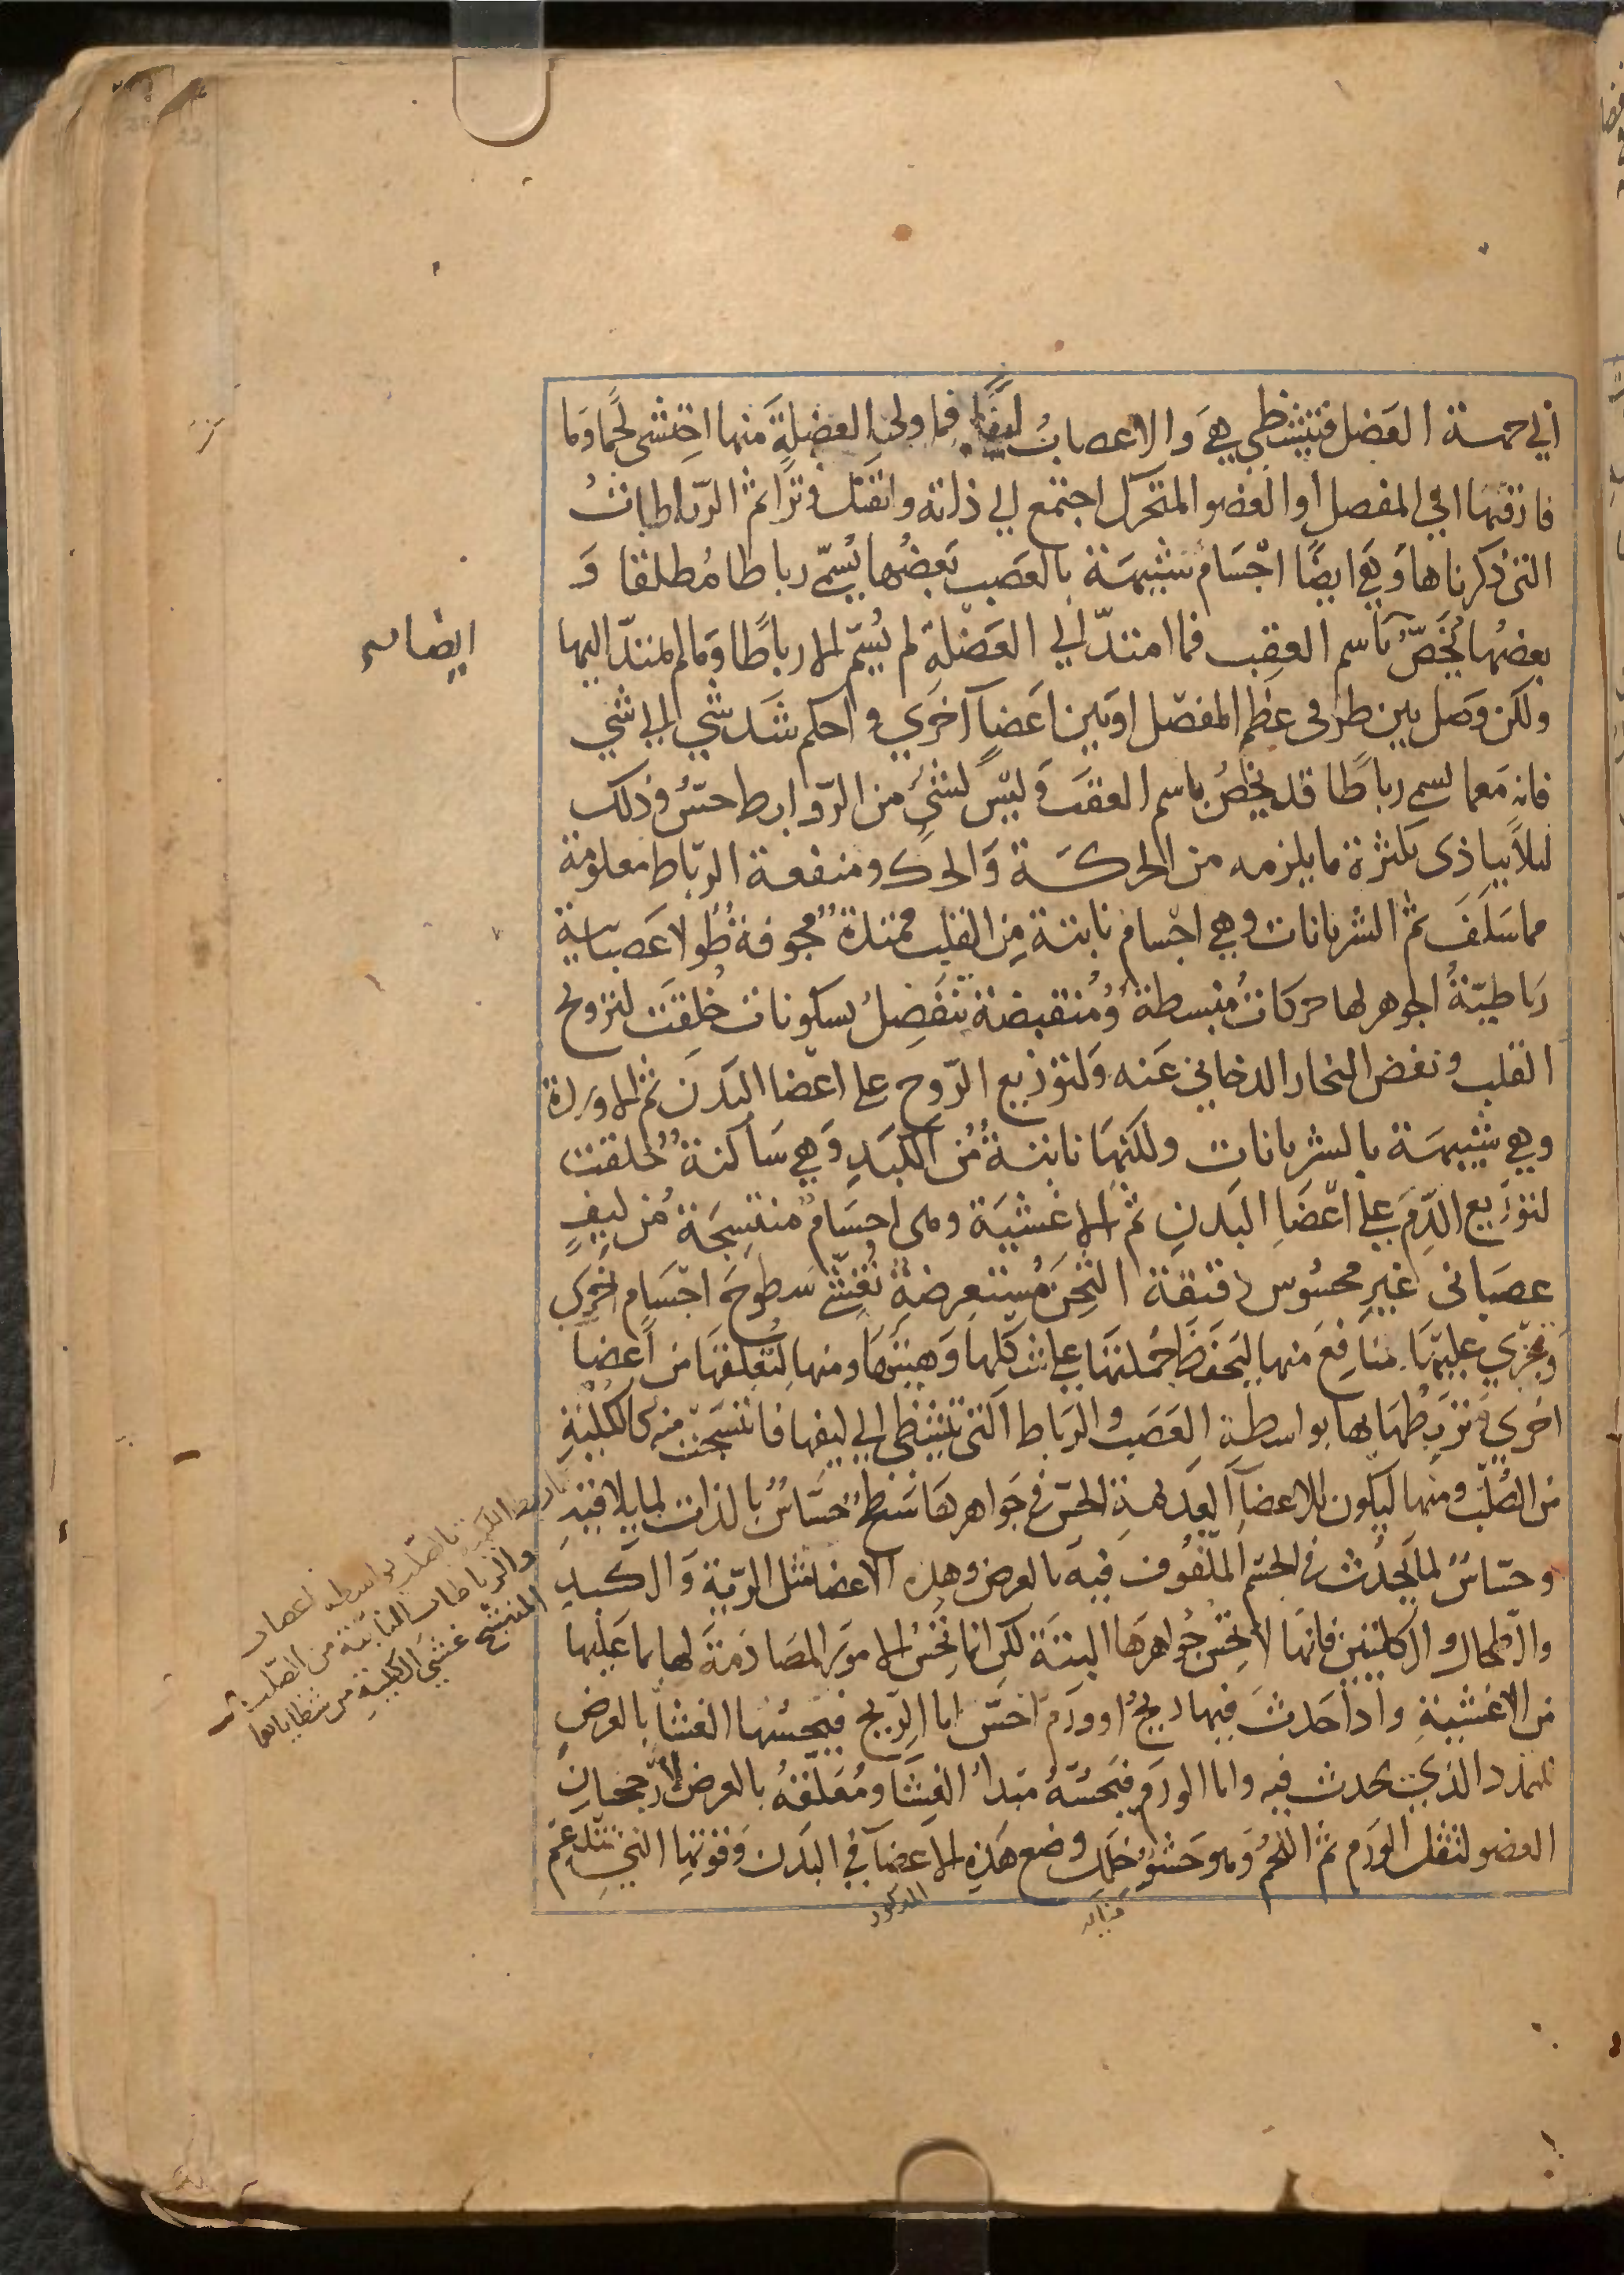 الي جهة العضل فتتشظى هي والاعصاب ليفا فما ولي العضلة منها احتشى لحما وما
فارقتها الى المفصل او العضو المتحرك اجتمع الى ذاته وانفتل وترا ثم الرباطات
التى ذكرناها وهي ايضا اجسام شبيهة بالعصب بعضها يسمى رباطا مطلقا و
بعضها يخص باسم العقب فما امتد الى العضلة لم يسم الا رباطا وما لم يمتد اليها
ولكن وصل بين طرفى عظم المفصل او بين اعضا آخرى واحكم شد شي الى شي
فانه مع ما يسمى رباطا قد يخص باسم العقب وليس لشئ من الروابط حس وذلك
ليلا يتاذى بكثرة ما يلزمه من الحركة والحك ومنفعة الرباط معلومة
مما سلف ثم الشريانات وهي اجسام نابتة من القلب ممتدة مجوفة طولا عصبانية
رباطية الجوهر لها حركات منبسطة ومنقبضة تنفصل بسكونات خلقت لترويح
القلب ونفض البخار الدخاني عنه ولتوزيع الروح على اعضا البدن ثم الاوردة
وهي شبيهة بالشريانات ولكنها نابتة من الكبد وهي ساكنة خلقت
لتوزيع الدم على اعضا البدن ثم الاغشية وهى اجسام منتسجة من ليف
عصبانى غير محسوس رقيقة الثخن مستعرضة تغشى سطوح اجسام اخرى
وتجري عليها منافع منها ليحفظ جملتها على شكلها وهيئتها ومنها لتعلقها من اعضا
اخرى وتربطها بها بواسطة العصب والرباط التى تتشظى الى ليفها فانتسجت منه كالكلية
من الصلب ومنها ليكون للاعضا العديمة الحس فى جواهرها سطح حساس بالذات لما يلاقيه
وحساس لما يحدث فى الجسم الملفوف فيه بالعرض وهذه الاعضا مثل الرية والكبد
والطحال والكليتين فانها لا تحس بجواهرها البتة لكن انما تحس الامور المصادمة لها بما عليها
من الاغشية واذا حدث فيها ريح او ورم احس اما الريح فيحسها الغشا بالعرض
للتمدد الذي يحدث فيه واما الورم فيحسه مبدا الغشا ومعلقه بالعرض لارجحنان
العضو لثقل الورم ثم اللحم وهو حشو خلل وضع هذه الاعضا في البدن وقوتها التي تدعم
ايضا
بواسطة اعصاب
والرباطات النابتة من الصلب
المنتسج غشي الكلية من شظاياها
المذكور